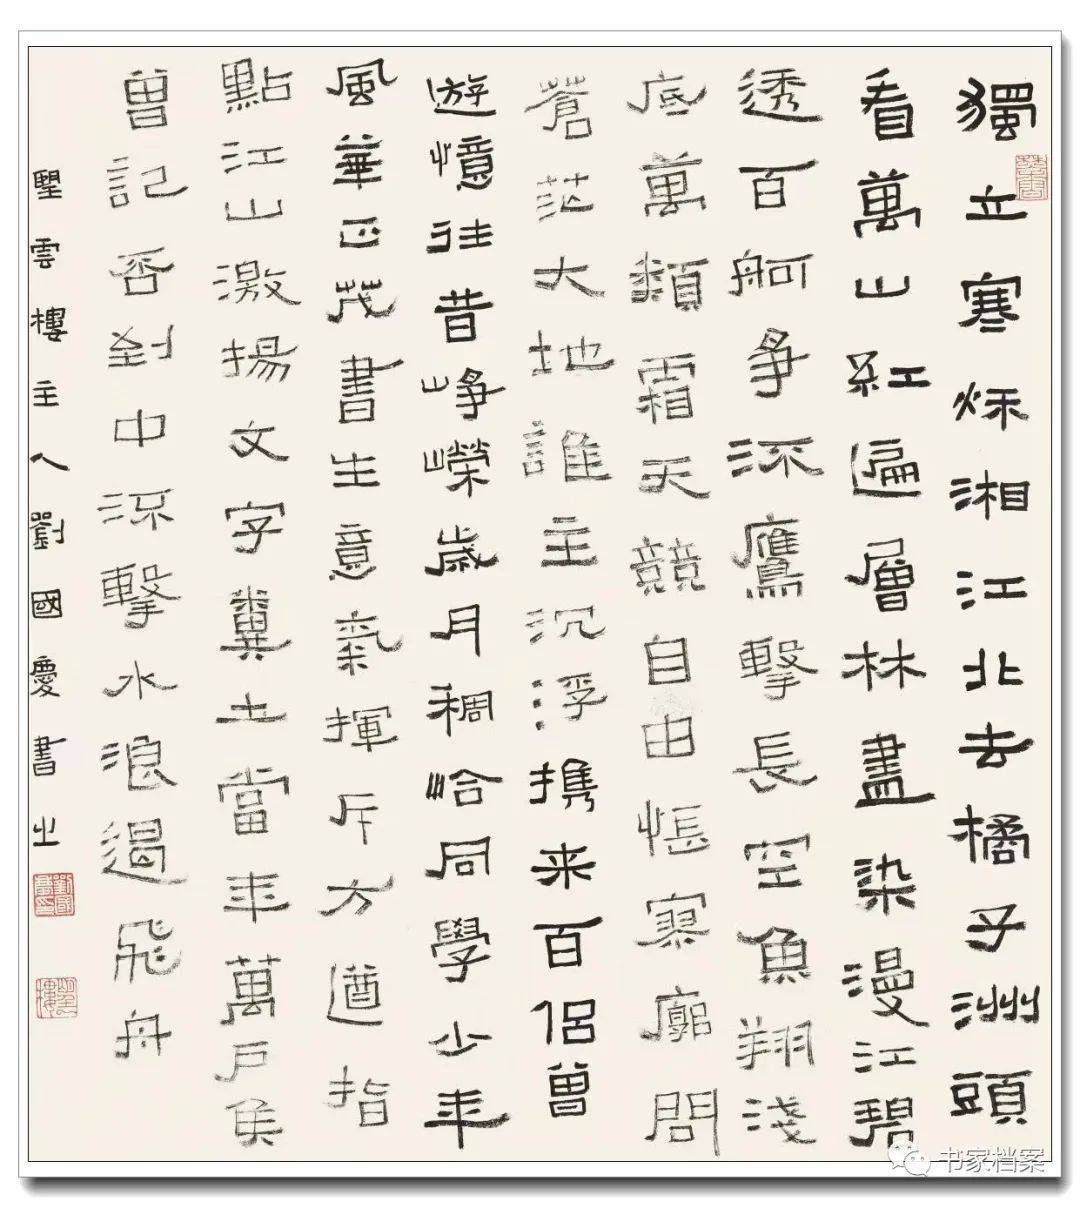 獨立寒秌湘江北去橘子洲頭
看萬山紅遍層林盡染漫江碧
透百舸爭流鷹擊長空魚翔淺
底萬類霜天競自由悵寥廓問
蒼茫大地誰主沉浮携来百侶曾
遊憶往昔崢嶸歲月稠恰同學少年
風華正茂書生意氣揮斥方遒指
點江山激揚文字糞土當年萬戶侯
曾記否到中流擊水浪遏飛舟
望雲樓主人劉國慶書之
书家档案